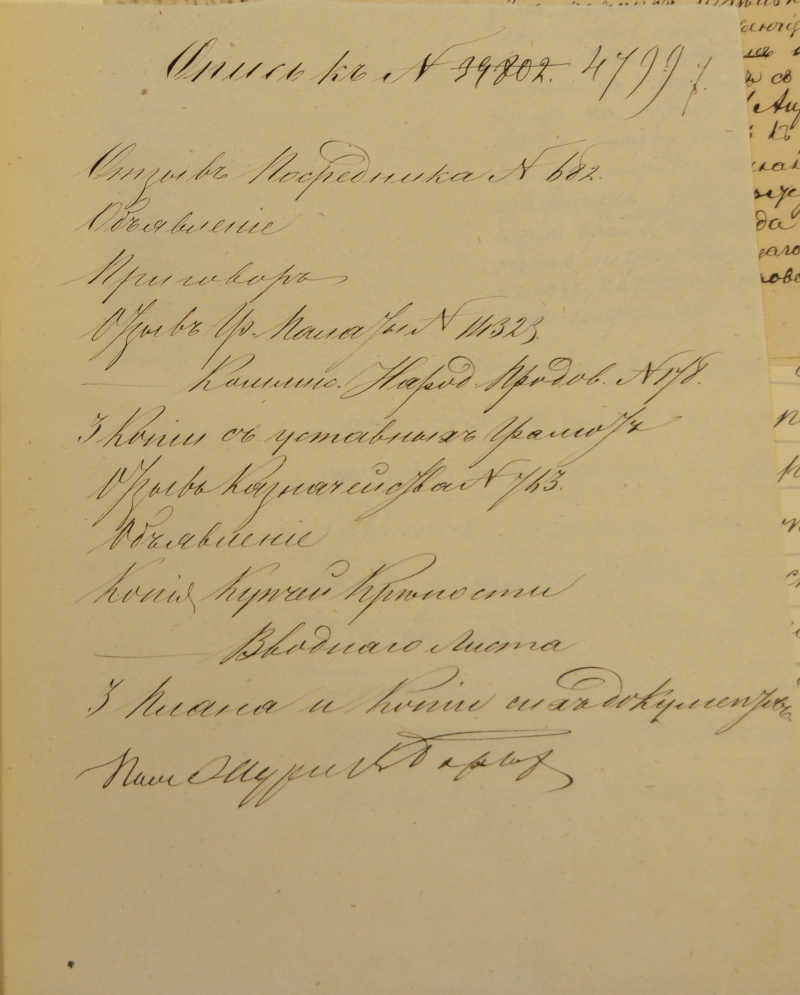 Опись къ N 39802. 4799
Отзывъ Посредника N 682.
Объявленіе
Приговоръ
Отзывъ Гр. Палаты N 11323.
Коммис. Народ. Продов. N 178.
3 Копіи съ уставныхъ Грамотъ
Отзывъ Казначейства N 763.
Объявленіе
Копія Купчей Крепости
Вводнаго Листа
3 Плана и Копіи сихъ документовъ